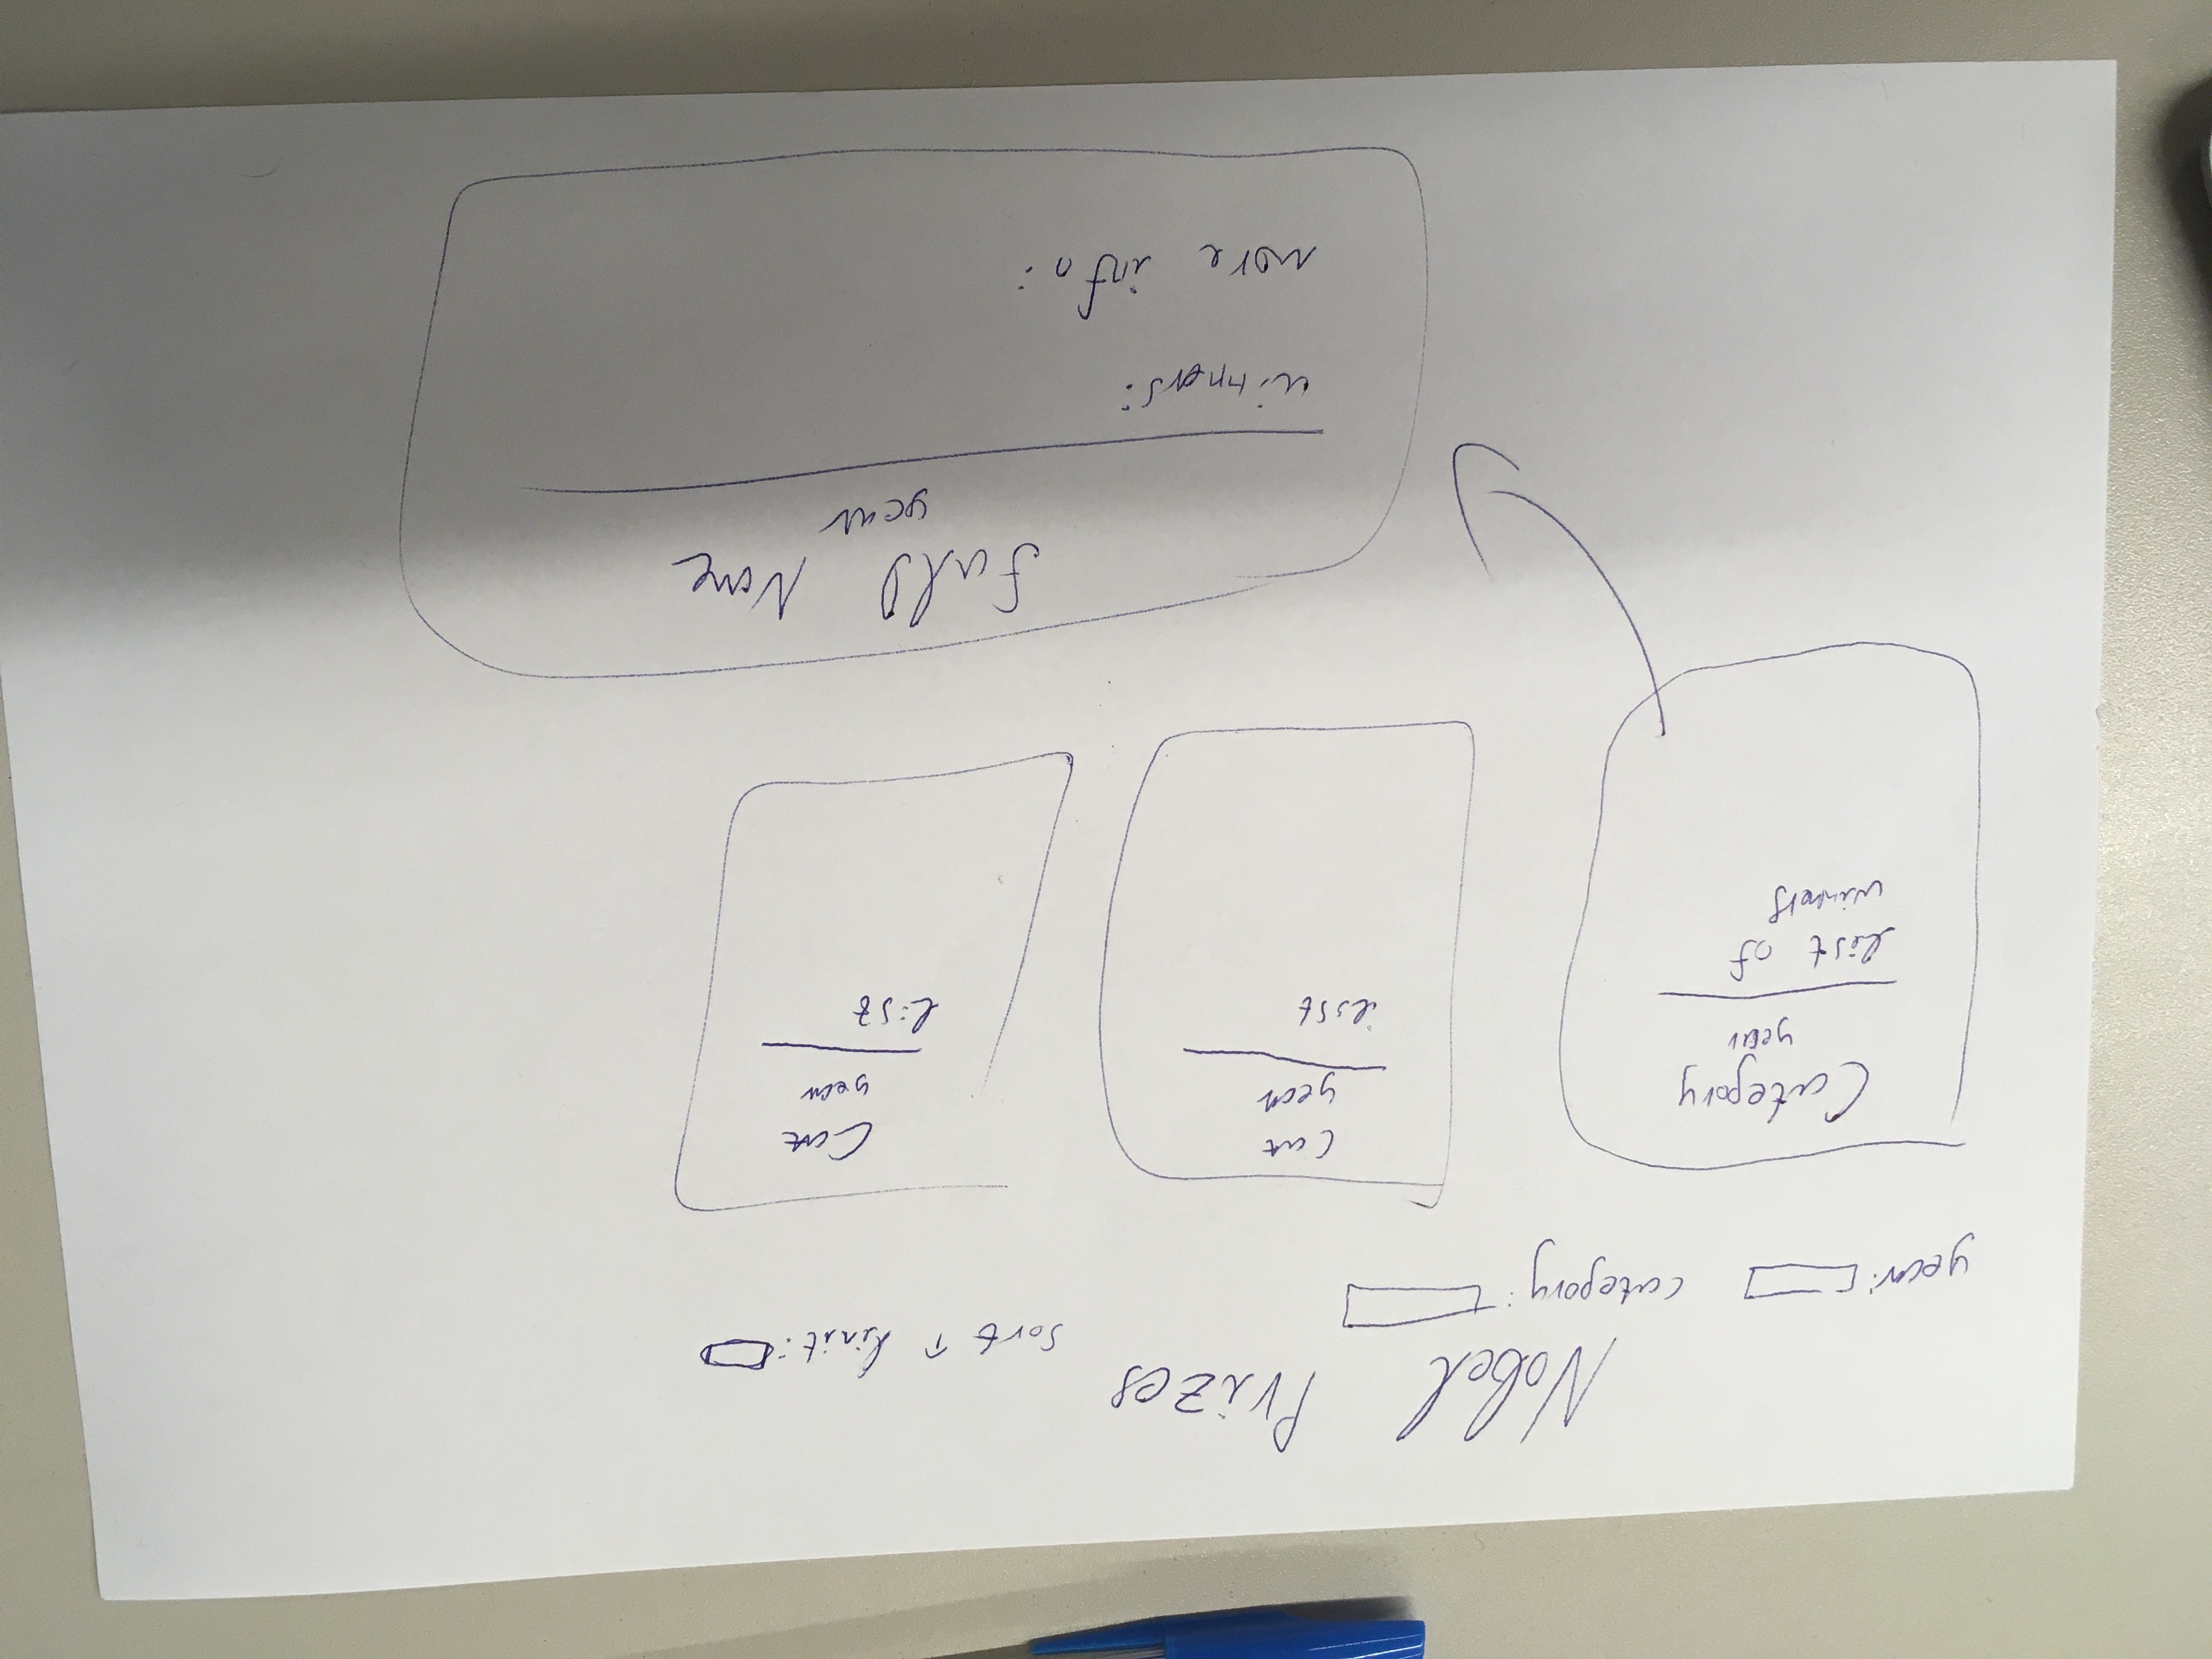 Nobel Prizes
sort ↑ limit:
year: category:
Category
year
list of
winners
Cat
year
list
Cat
year
list
full Name
year
winners:
more info: